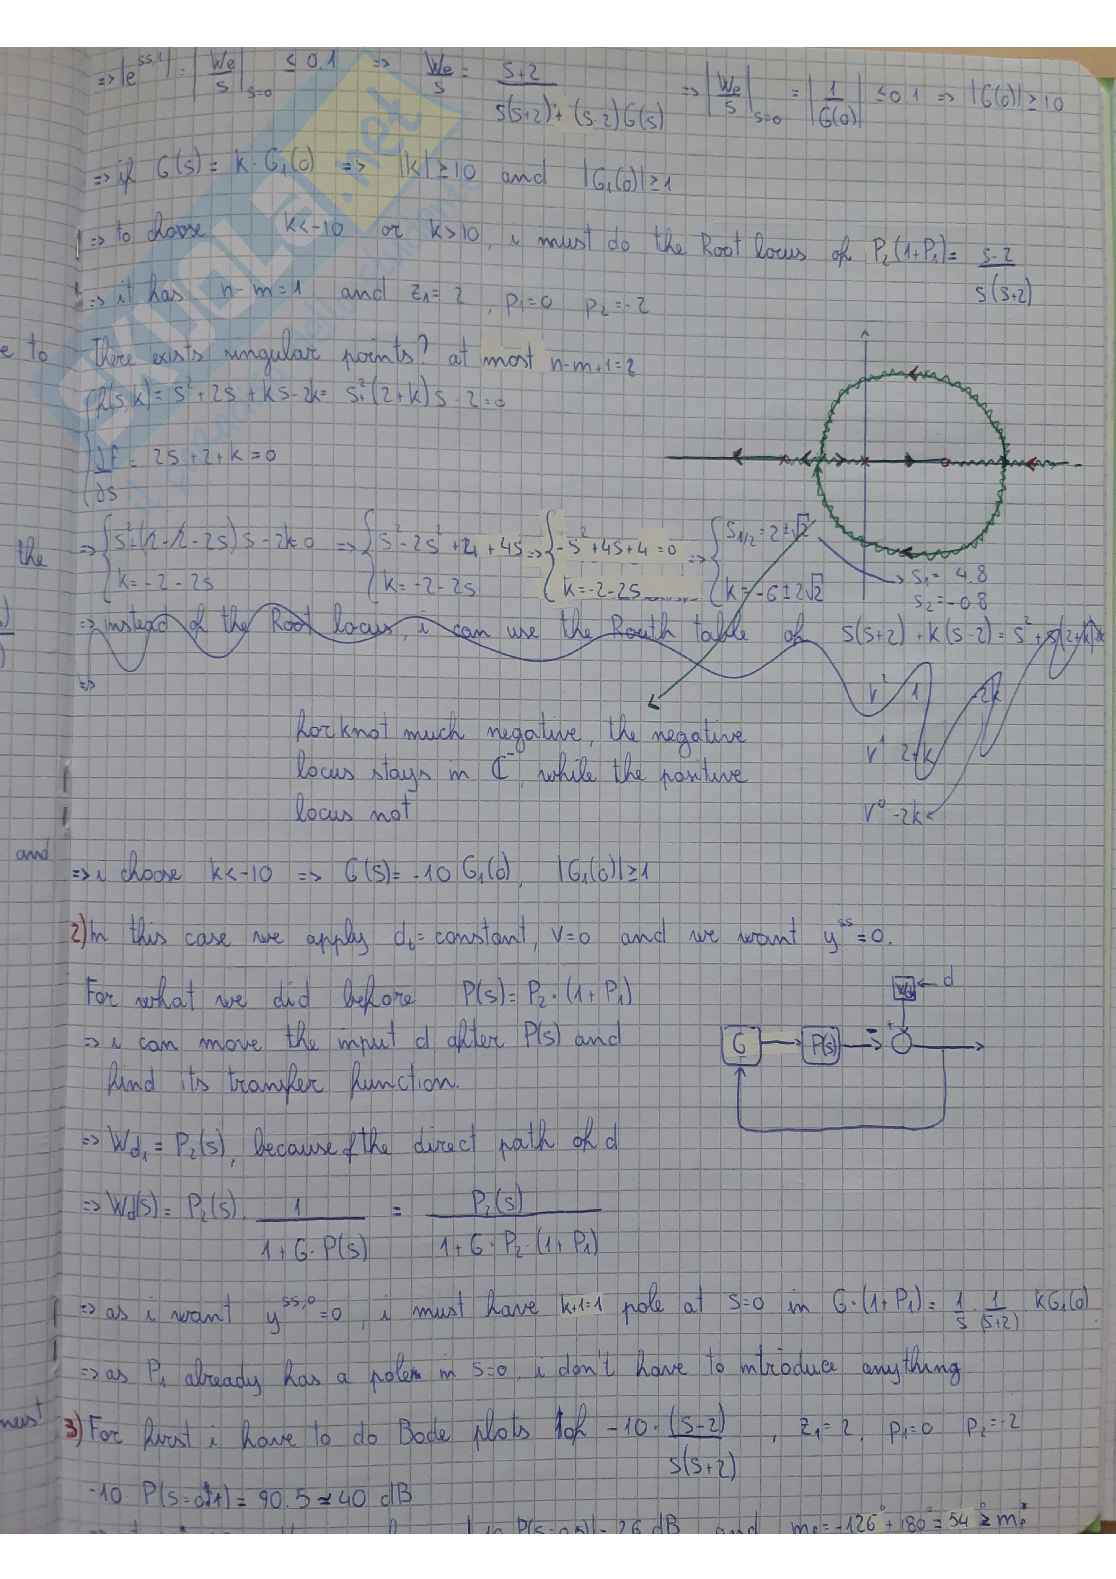 => |e^{ss,1}| = |We/s|_{s=0} ≤ 0.1 => We/s = (s+2)/(s(s+2)+(s-2)G(s)) => |We/s|_{s=0} = |1/G(0)| ≤ 0.1 => |G(0)| ≥ 10
=> if G(s) = k·G₁(0) => |k| ≥ 10 and |G₁(0)| ≥ 1
=> to choose k<-10 or k>10, i must do the Root locus of P₂(1+P₁) = (s-2)/(s(s+2))
=> it has n-m=1 and z₁=2, p₁=0 p₂=-2
e to
There exists singular points? at most n-m+1=2
f(s,k) = s²+2s+ks-2k = s²+(2+k)s-2=0
∂f/∂s = 2s+2+k=0
the
=> {s²+(2-2-2s)s-2k=0 => {s²-2s²+4+4s => {-s²+4s+4=0 => {s₁/₂=2±√2
{k=-2-2s {k=-2-2s {k=-2-2s {k=-6±2√2
s₁= 4.8
s₂=-0.8
=> instead of the Root locus, i can use the Routh table of s(s+2)+k(s-2)=s²+s(2+k)
=>
r² 1 -2k
r¹ 2+k
r⁰ -2k
for k not much negative, the negative
locus stays in ℂ⁻ while the positive
locus not
and
=> i choose k<-10 => G(s)=-10 G₁(0), |G₁(0)|≥1
2) In this case we apply d₁=constant, v=0 and we want y^{ss}=0.
d
For what we did before P(s)=P₂·(1+P₁)
=> i can move the input d after P(s) and
G P(s)
find its transfer function.
=> Wd₁=P₂(s), because of the direct path of d
=> Wd(s)=P₂(s) · 1/(1+G·P(s)) = P₂(s)/(1+G·P₂·(1+P₁))
=> as i want y^{ss,0}=0, i must have k+1=1 pole at s=0 in G·(1+P₁)= 1/s · 1/(s+2) kG₁(0)
=> as P₁ already has a pole in s=0, i don't have to introduce anything
must
3) For first i have to do Bode plots of -10·(s-2)/(s(s+2)), z₁=2, p₁=0 p₂=-2
-10 P(s=0.1)=90.5≃40 dB
P(s=)|=26 dB and mᵩ=-126°+180°=54°≥mᵩ*